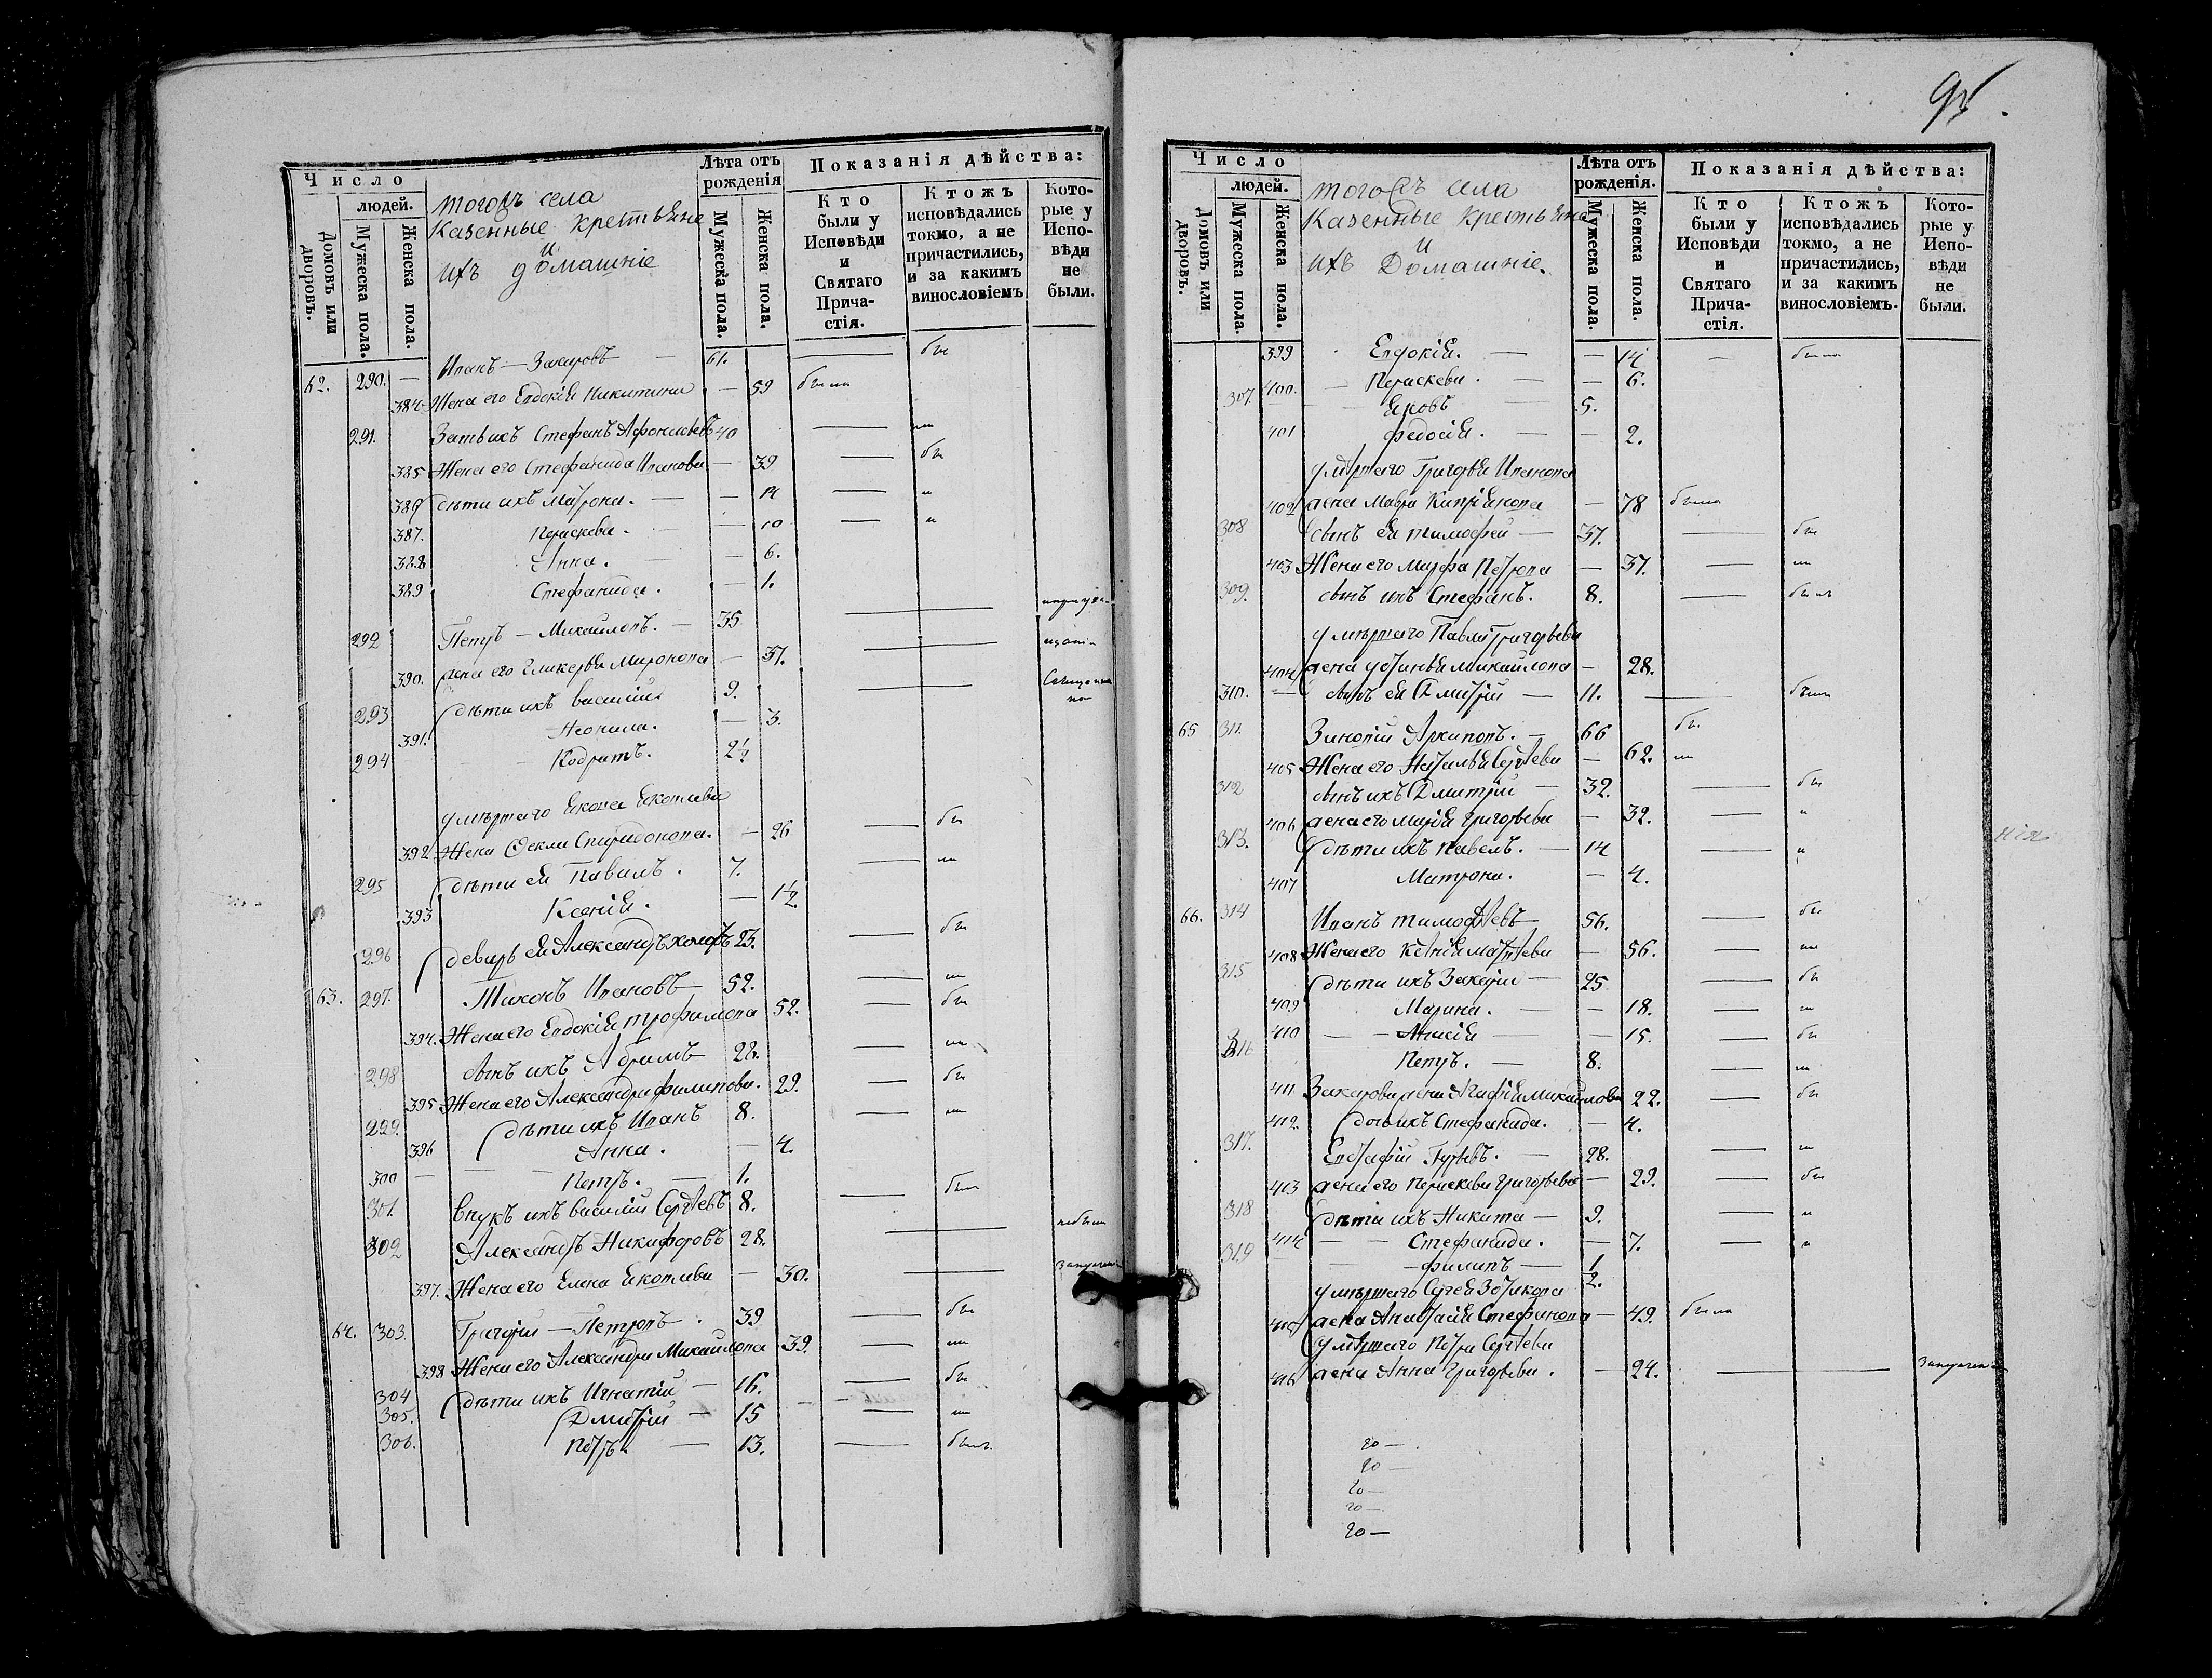 Число
людей.
Домовъ или дворовъ.
Мужеска пола.
Женска пола.
тогожъ села
казенные крестьяне
и
ихъ домашніе
Лѣта отъ рожденія
Мужеска пола.
Женска пола.
Показанія дѣйства:
Кто были у Исповѣди и Святаго Причастія.
Ктожъ исповѣдались токмо, а не причастились, и за какимъ винословіемъ
Которые у Исповѣди не были.
62. 290. — Иванъ — Захаровъ — 61. — бы
384. Жена его Евдокія Никитина — 59 была
291. Зять ихъ Стефанъ 40 —
385 Жена его Стефанида Иванова — 39 — бы
386 дѣти ихъ Матрона. — — 14 — „
387. Параскева. — 10 — „
388 Анна. — 6.
389 Стефанида. — 1.
292 Петръ — Михайловъ. — 35 —
390. жена его Гликерья Миронова — 37. —
293 дѣти ихъ Василій 9. —
391. Неонила. — 3.
294 Кодратъ. 2½
умершаго Якова Яковлева
392 Жена Фекла Спиридонова. — 26 — бы
295 дѣти ея Павелъ. 7. —
393 Ксенія. — 1½
296 деверь ея Александръ 23. — бы
63. 297. Тихонъ Ивановъ 52. —
394. Жена его Евдокія Трофимова 52. — бы
298 сынъ ихъ Абрамъ 28. —
395 Жена его Александра Филипова. 29. — бы
299. дѣти ихъ Иванъ 8. —
396 Анна. — 4.
300 — — Петръ. — 1.
301. внукъ ихъ Василій Сергѣевъ 8. —
302 Александръ Никифоровъ 28. —
397. Жена его Елена Яковлева — 30. —
64. 303. Григорій — Петровъ. 39 — бы
398 Жена его Александра Михайлова 39. —
304 дѣти ихъ Игнатій — 16. — бы
305. Дмитрій — 15 —
306. Петръ — 13. —
95.
Число
людей.
Домовъ или дворовъ.
Мужеска пола.
Женска пола.
тогожъ села
казенные крестьяне
и
ихъ Домашніе.
Лѣта отъ рожденія.
Мужеска пола.
Женска пола.
Показанія дѣйства:
Кто были у Исповѣди и Святаго Причастія.
Ктожъ исповѣдались токмо, а не причастились, и за какимъ винословіемъ.
Которые у Исповѣди не были.
399 Евдокія. — — 14 —
400. — Параскева. — — 6.
307. — Яковъ — 5.
401 Федосія. — — 2.
умершаго Григорья Иванова
402 жена Мавра Кипріянова — 78 была
308 сынъ ея Тимофей — 37. — бы
403 Жена его Марфа Петрова — 37. —
309. сынъ ихъ Стефанъ. 8. —
умершаго Павла Григорьева
404 жена Устинья Михайлова — 28.
310. — сынъ ея Дмитрій — 11. —
65 311. Зиновій Архиповъ. — 66 бы
405 Жена его Наталья Сергѣева — 62.
312 сынъ ихъ Дмитрій — 32. — бы
406 жена его Марія Григорьева — 32. — „
313. дѣти ихъ Павелъ. — 14 — „
407 Матрона. — 4.
66. 314 Иванъ Тимофѣевъ 56. — бы
408 Жена его Ксенія Матвѣева — 56. —
315 дѣти ихъ Захарій — 25 — бы
409 Марина. — — 18. —
410 — — Анисія — — 15. — бы
316 Петръ. — 8. —
411 Захарова жена Агафія Михайлова 22. — бы
412. дочь ихъ Стефанида. — 4.
317. Евстафій. — 28. —
413 жена его Параскева Григорьева — 29. — бы
318 дѣти ихъ Никита — 9. — „
414 — — Стефанида. — 7. — „
319 — — Филипъ — ½
умершаго Сергея Зотикова
415 жена Анастасія Стефанова — 49. была
умершаго Петра Сергѣева
416 жена Анна Григорьева. — 24. —
20 —.
20 —
20 —
20 —
20 —